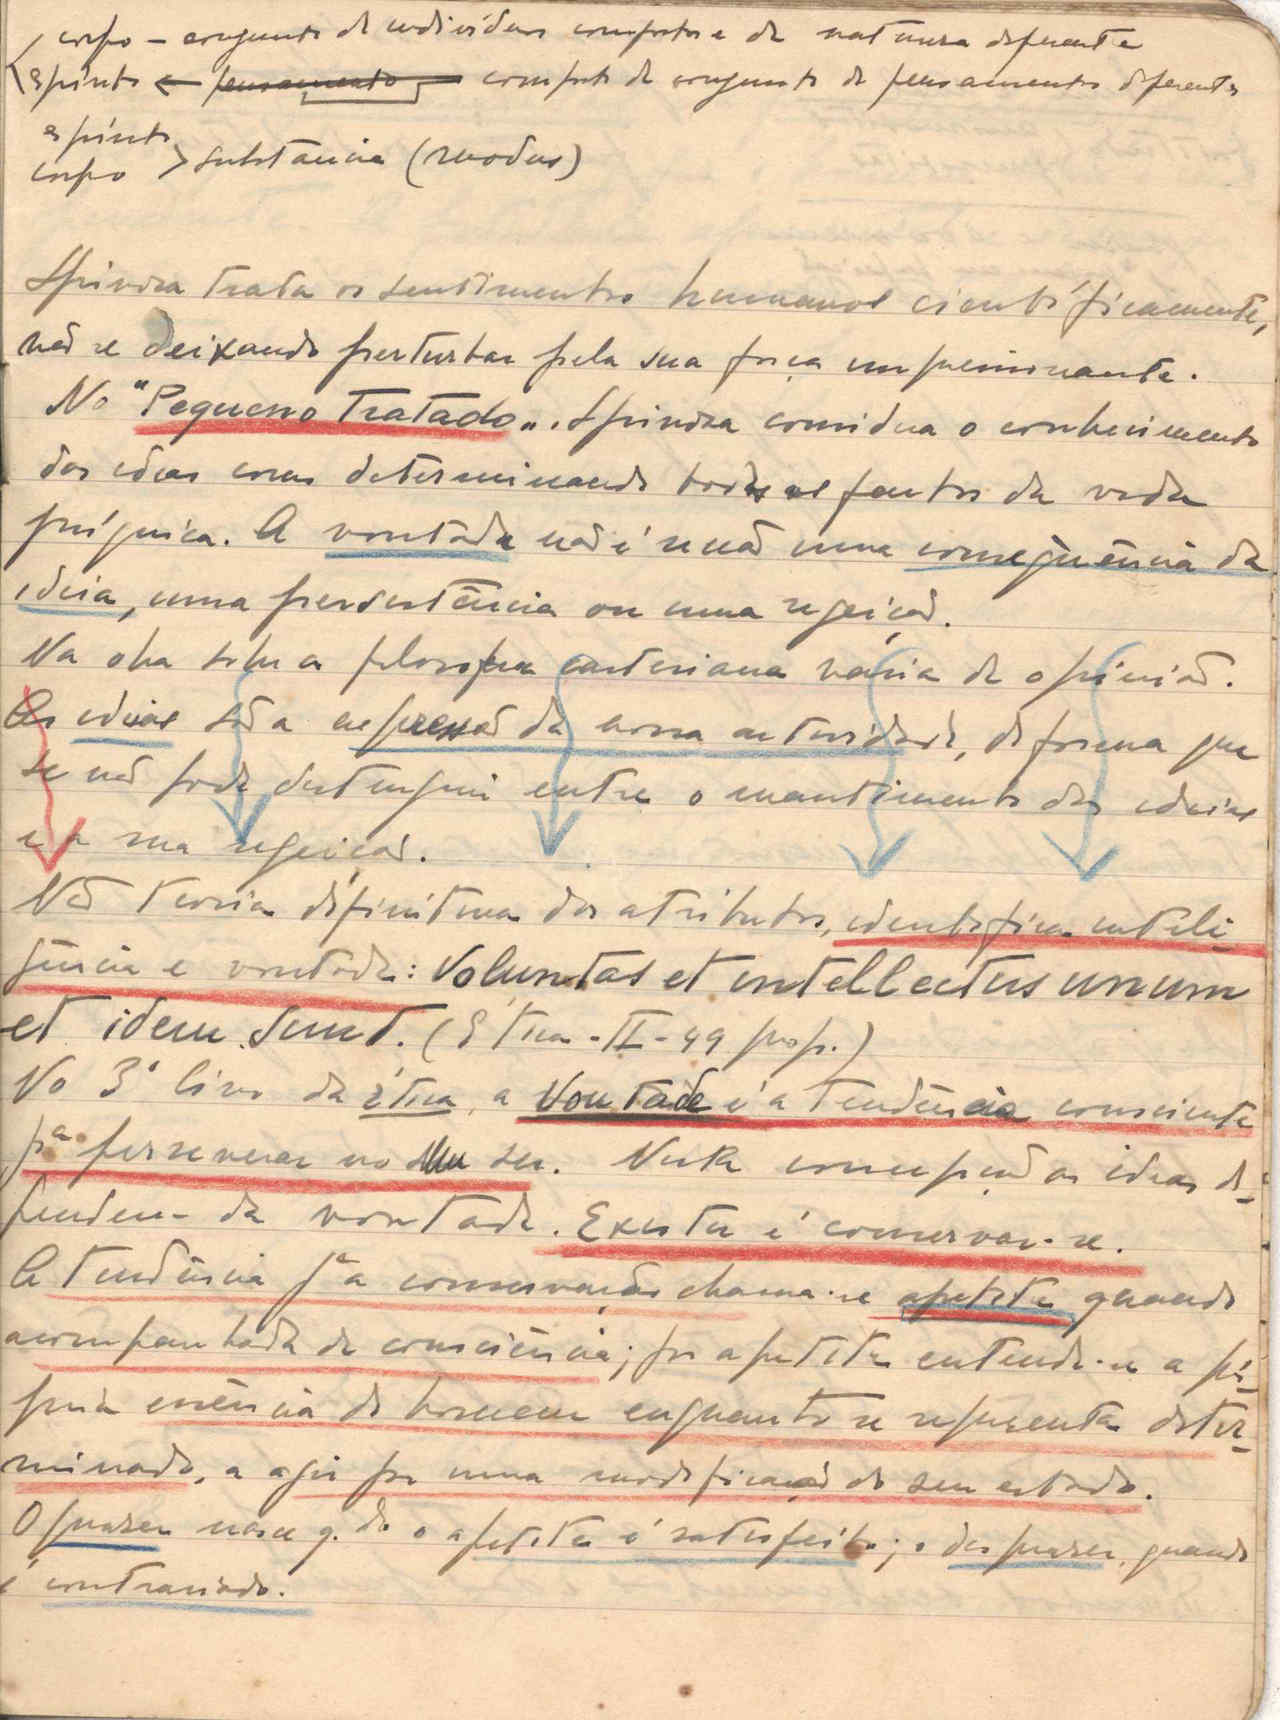 corpo – conjunto de indivíduos compostos e de natureza diferente
espírito ← pensamento composto de conjunto de pensamentos diferentes
espírito
corpo > substância (modus)
Spinoza trata os sentimentos humanos cientificamente,
não se deixando perturbar pela sua força impressionante.
No "Pequeno Tratado„. Spinoza considera o conhecimento
das ideias como determinando todos os factos da vida
psíquica. A vontade não é senão uma consequência da
ideia, uma persistência ou uma rejeição.
Na obra sobre a filosofia cartesiana varia de opinião.
As ideias são a expressão da nossa actividade, de forma que
se não pode distinguir entre o mantimento das ideias
e a sua rejeição.
Na teoria definitiva dos atributos, identifica inteli-
gência e vontade: Voluntas et intellectus unum
et idem sunt. (Ética - II - 49 prop.)
No 3º livro da ética, a vontade é a tendência consciente
pª perseverar no seu ser. Nesta concepção as ideias de-
pendem da vontade. Existir é conservar-se.
A tendência pª a conservação chama-se apetite quando
acompanhada de consciência; por apetite entende-se a pró-
pria essência do homem enquanto se representa deter-
minado, a agir por uma modificação do seu estado.
O prazer nasce q.do o apetite é satisfeito; o desprazer, quando
é contrariado.